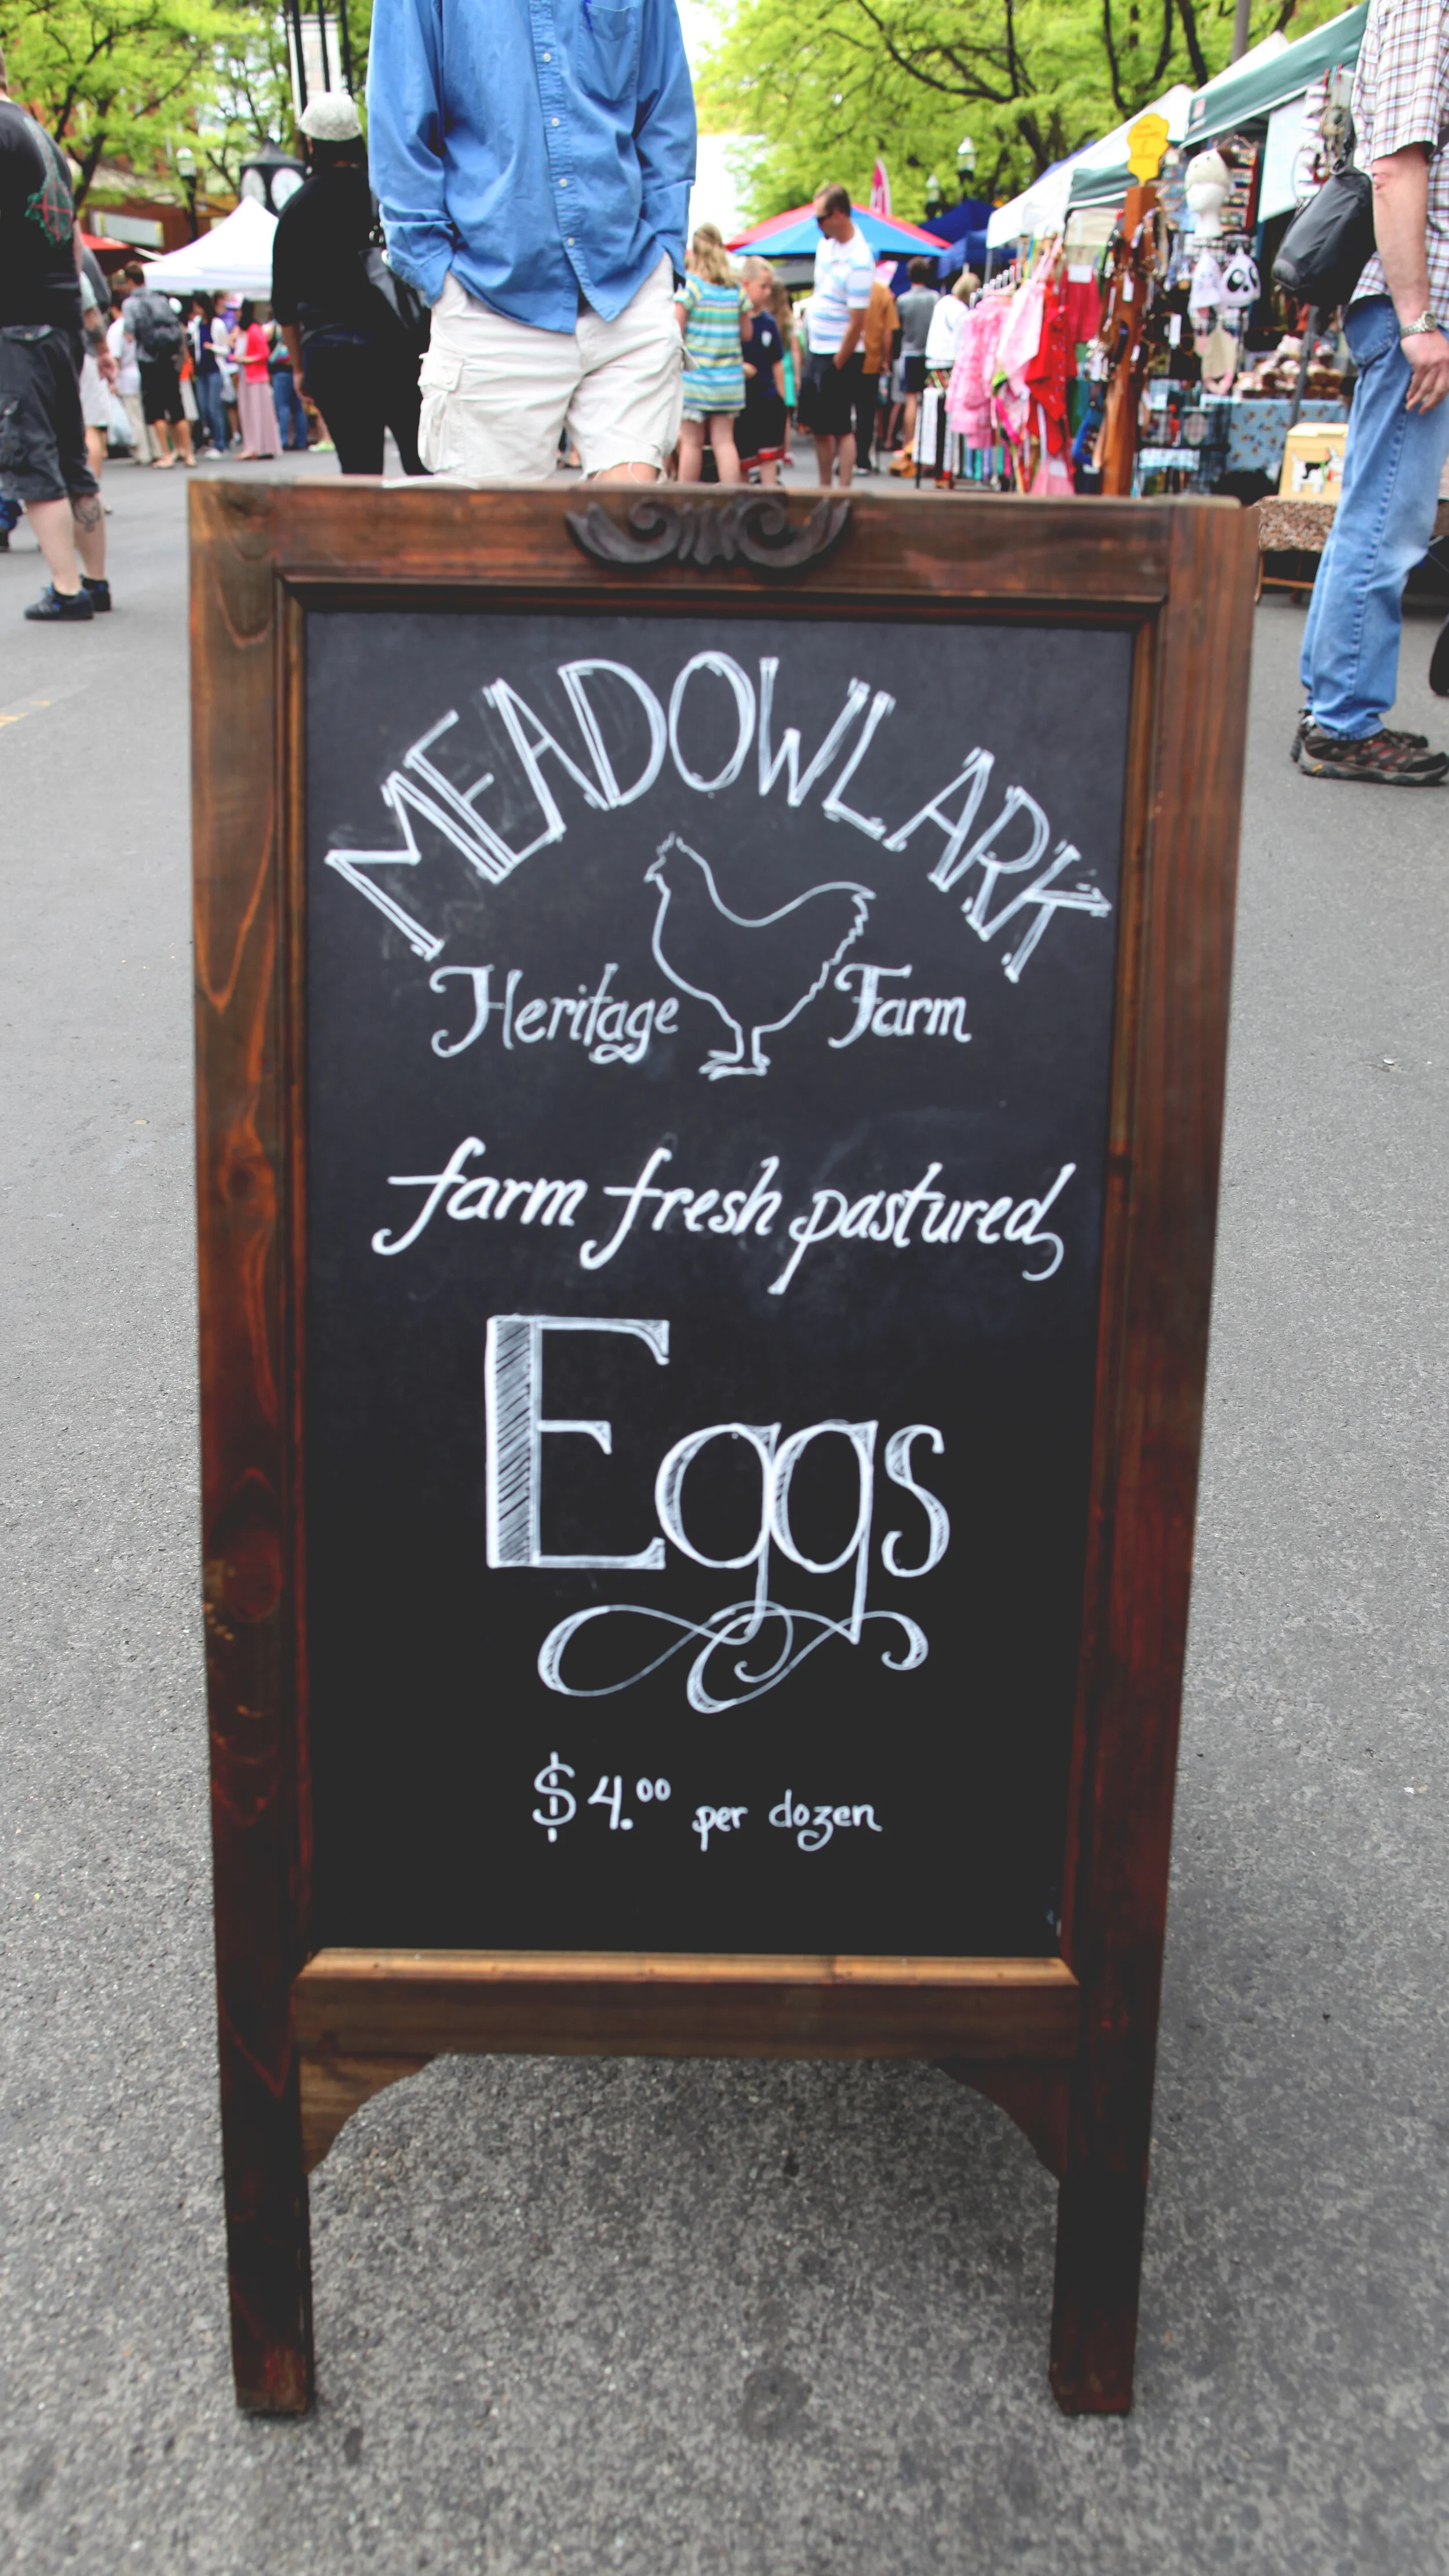 MEADOWLARK
Heritage Farm
farm fresh pastured
Eggs
$4.00 per dozen